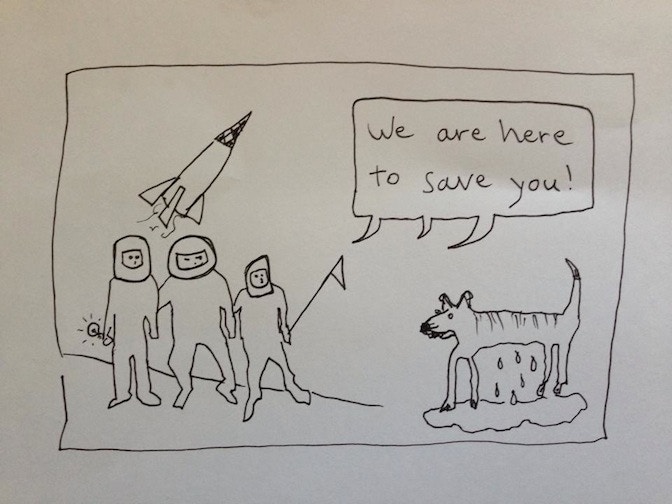 We are here
to save you!